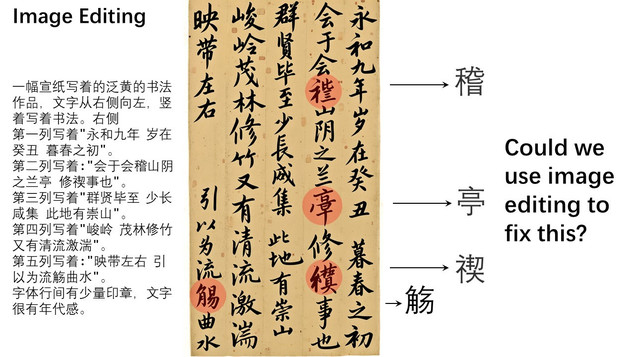 Image Editing
一幅宣纸写着的泛黄的书法
作品，文字从右侧向左，竖
着写着书法。右侧
第一列写着"永和九年 岁在
癸丑 暮春之初"。
第二列写着:"会于会稽山阴
之兰亭 修禊事也"。
第三列写着"群贤毕至 少长
咸集 此地有崇山"。
第四列写着"峻岭 茂林修竹
又有清流激湍"。
第五列写着:"映带左右 引
以为流觞曲水"。
字体行间有少量印章，文字
很有年代感。
永和九年岁在癸丑 暮春之初
会于会山阴之兰 修事也
群贤毕至少長咸集 此地有崇山
峻岭茂林修竹又有清流激湍
映带左右 引以为流曲水
稽
亭
禊
觞
Could we
use image
editing to
fix this?